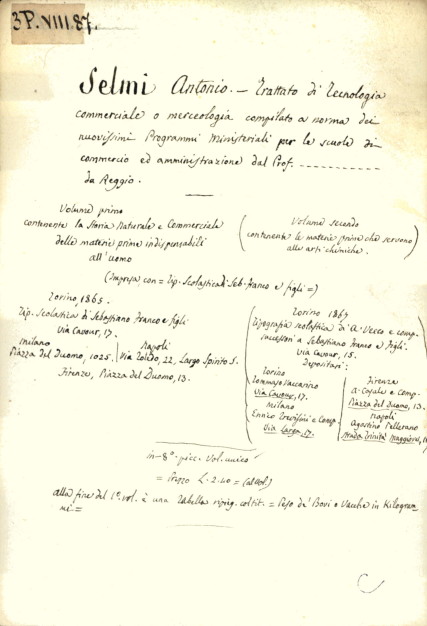 3P.VIII.87.
Selmi Antonio. — Trattato di Tecnologia
commerciale o merceologia compilato a norma dei
nuovissimi Programmi Ministeriali per le scuole di
commercio ed amministrazione dal Prof.
da Reggio.
Volume primo
contenente la Storia Naturale e Commerciale
delle materie prime indispensabili
all'uomo
(Volume secondo
contenente le materie prime che servono
alle arti chimiche.)
(Impresa con = Tip. Scolastica di Seb. Franco e figli =)
Torino 1865.
Tip. Scolastica di Sebastiano Franco e figli
Via Cavour, 17.
Milano
Piazza del Duomo, 1025.
Napoli
Via Toledo, 22, Largo Spirito S.
Firenze, Piazza del Duomo, 13.
Torino 1867
Tipografia scolastica di A. Vecco e comp.
successori a Sebastiano Franco e Figli.
Via Cavour, 15.
Depositari:
Torino
Tommaso Vaccarino
Via Cavour, 17.
Milano
Enrico Trevisini e Comp.
Via Larga, 17.
Firenze
Comp.
Piazza del Duomo, 13.
Napoli
Agostino Pellerano
Strada Trinità Maggiore,
in-8° picc. Vol. unico
= Prezzo L. 2.40 =
alla fine del 1° vol. è una Tabella = Peso de' Bovi e Vacche in Kilogram-
mi =